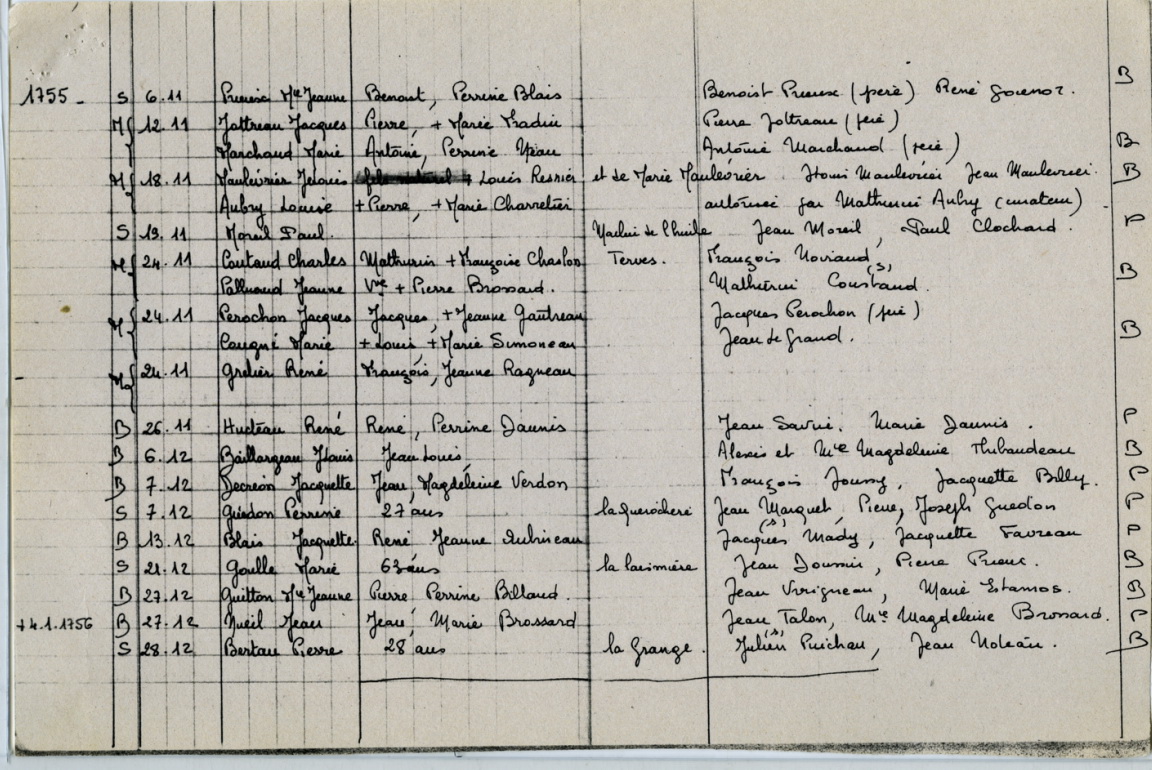 1755 - S 6.11 Preuix Mie Jeanne Benoist, Perrine Blais Benoist Preux (père) René B
M { 12.11 Jottreau Jacques Pierre, + Marie Pierre Jottreau (père)
Marchaud Marie Antoine, Perrine Antoine Marchaud (père) B
M { 18.11 Maulevrier Jelouis + Louis et de Marie Maulévrier Maulevrier Jean Maulevrier. B
Aubry Louise + Pierre, + Marie Charretier autorisée par Mathurin Aubry (curateur)
S 19.11 Moreil Paul. de l'huile Jean Moreil, Paul Clochard. P
M { 24.11 Coutaud Charles Mathurin + Françoise Chaslon Terves. François
Jeanne Vve + Pierre Brossard. Mathurin Coustaud (s). B
M { 24.11 Perochon Jacques Jacques, + Jeanne Gautreau Jacques Perochon (père)
Cougné Marie + Louis + Marie Simoneau Jean le Grand. B
{ 24.11 Grelier René François, Jeanne Ragneau
B 26.11 Hucteau René René, Perrine Daunis Jean Marie Daunis. P
B 6.12 Baillargeau Jlouis Jean Louis Alexis et Mie Magdeleine Thibaudeau B
B 7.12 Decreon Jacquette Jean, Magdeleine Verdon François Jacquette Billy. P
S 7.12 Guedon Perrine 27 ans Jean Marquet, Pierre, Joseph Guedon P
B 13.12 Blais Jacquette. René, Jeanne Aubineau Jacques (s) Mady, Jacquette Favreau P
S 21.12 Goulle Marie 63 ans Jean, Pierre B
B 27.12 Guitton Mie Jeanne Pierre, Perrine Billaud. Jean Vrigneau, Marie Estamos. B
+ 4.1.1756 B 27.12 Nueil Jean Jean, Marie Brossard Jean Talon, Mie Magdeleine Brossard. P
S 28.12 Bertau Pierre 28 ans la Grange. Julien (s) Puichau, Jean B